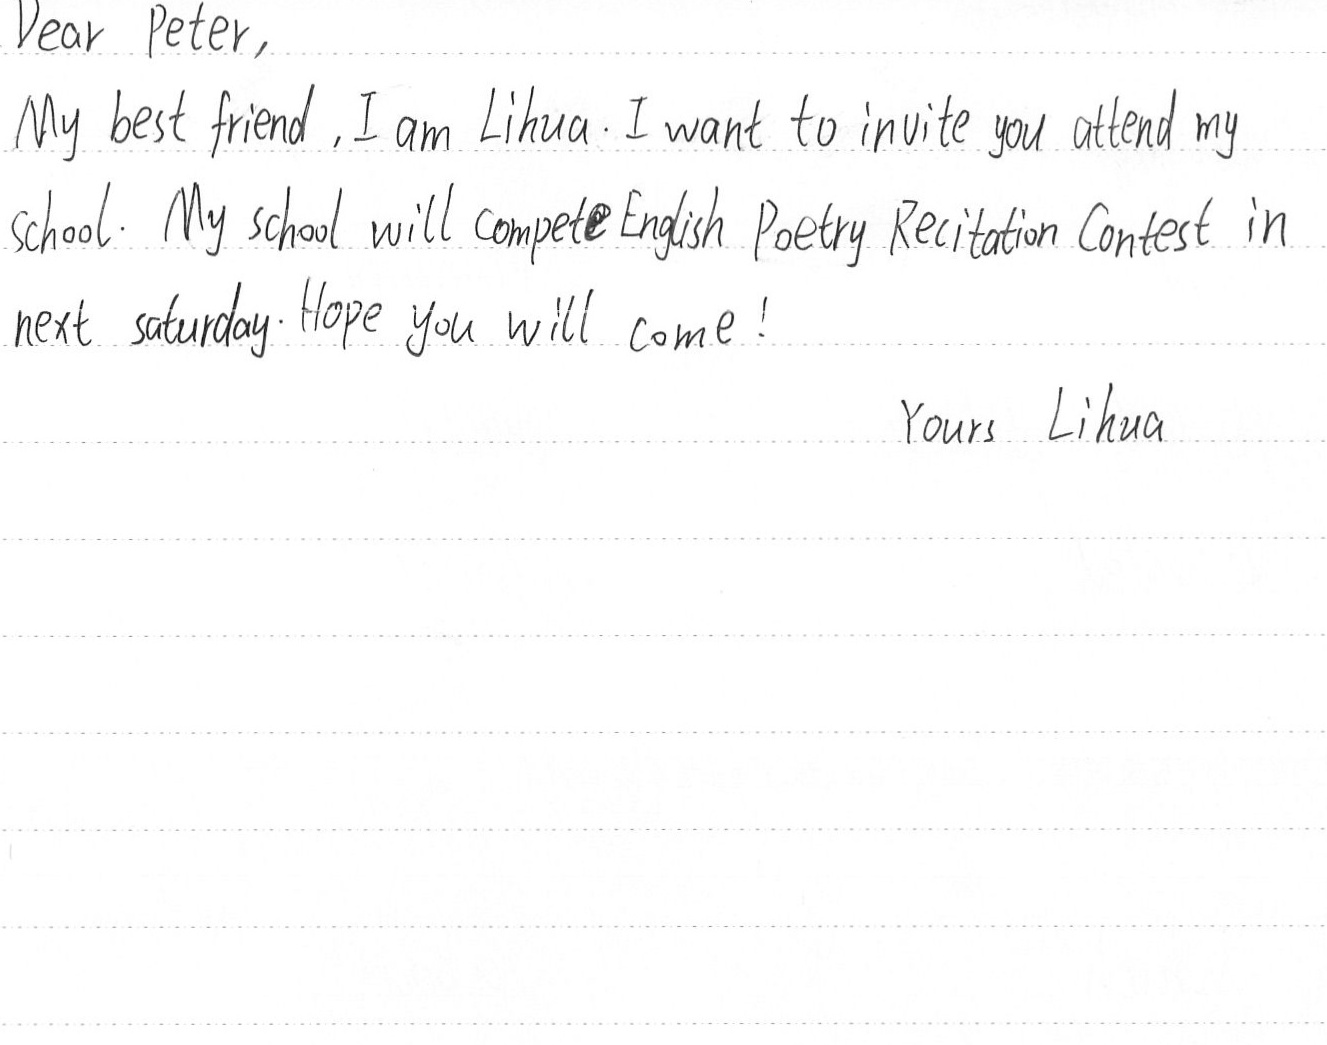 Dear Peter,
My best friend, I am Lihua. I want to invite you attend my
school. My school will compete English Poetry Recitation Contest in
next saturday. Hope you will come!
Yours Lihua